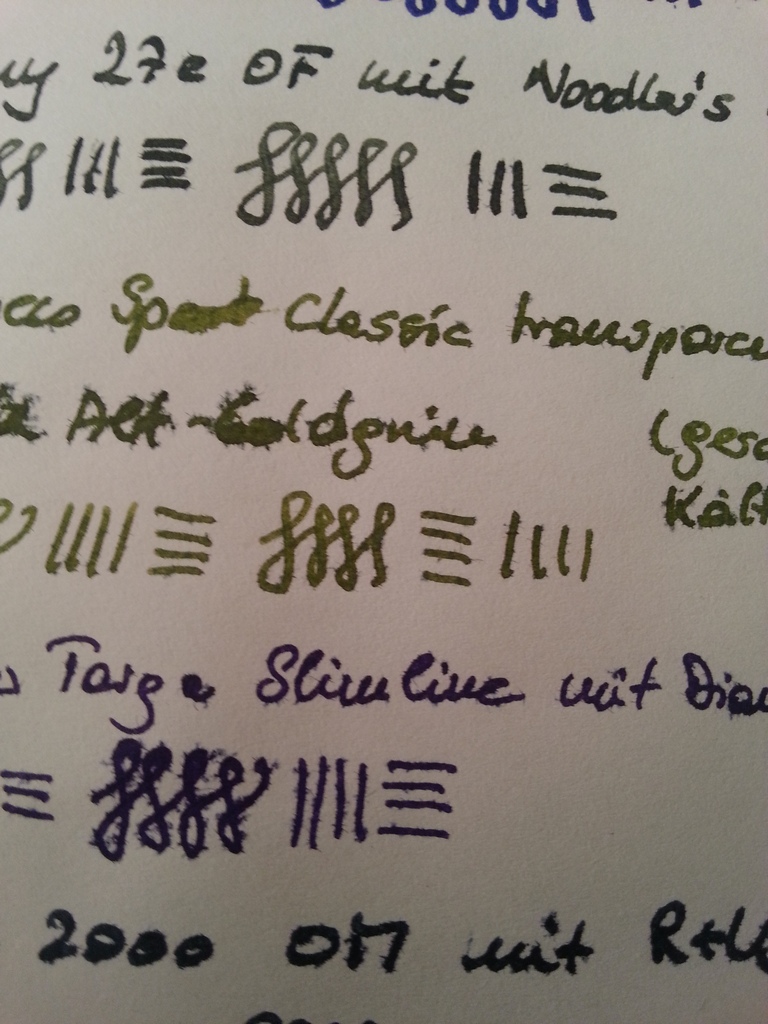 27e OF mit Noodler's
Sport Classic transparen
Alt-Goldgrün (gesc
Kält
Targa Slimline mit Diam
2000 OM mit R+K